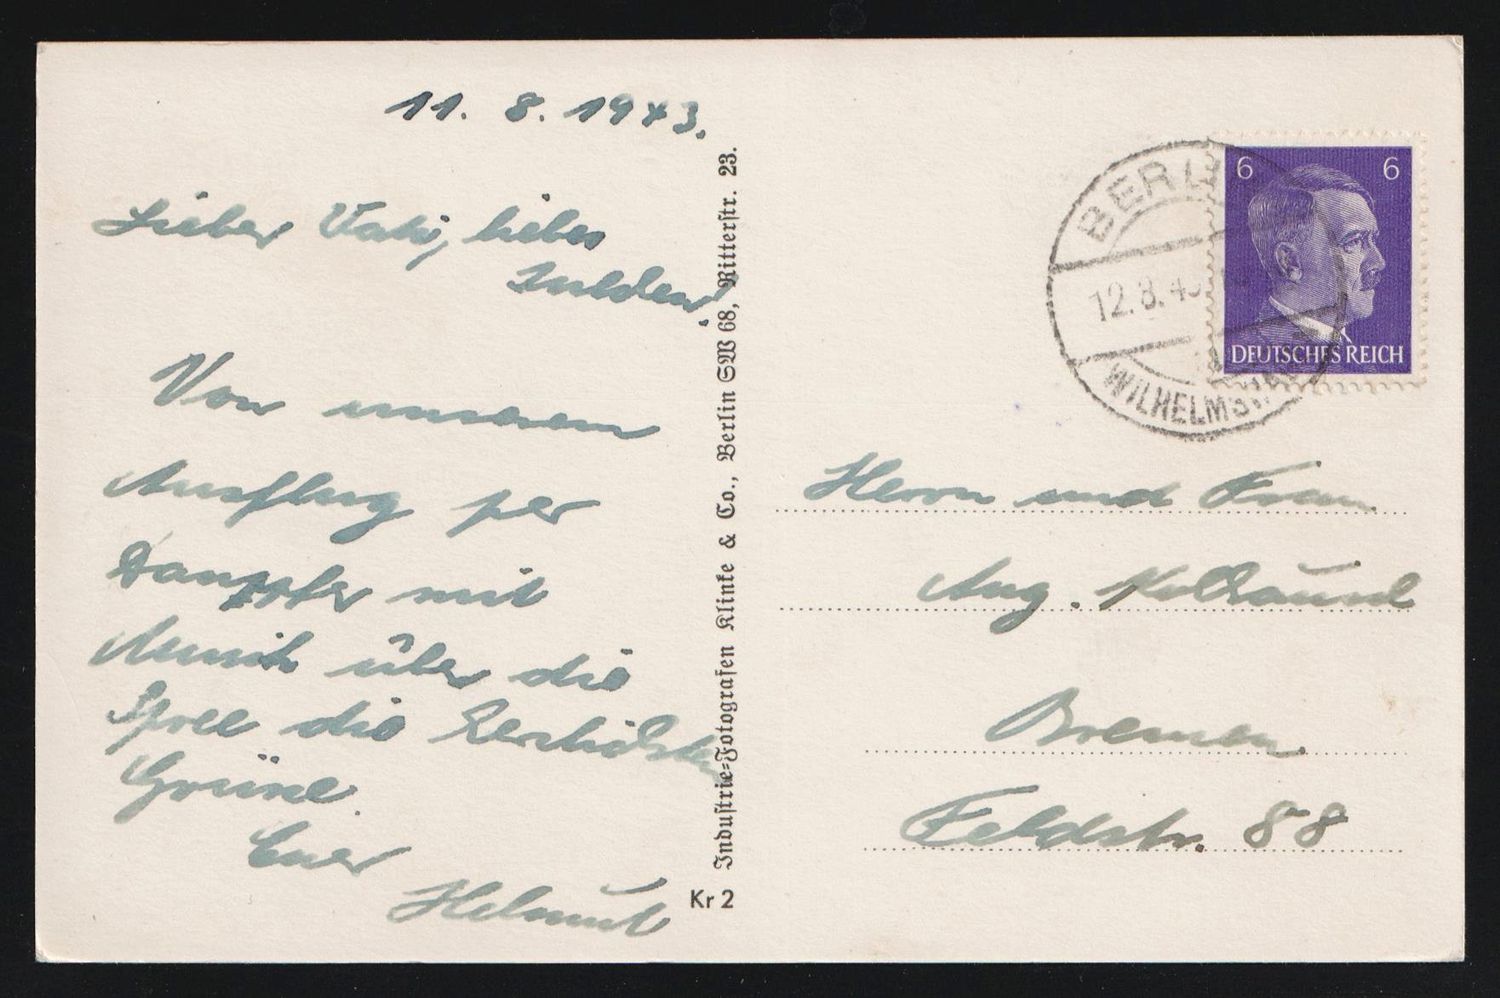 11. 8. 1943.
Lieber Vati, liebes
Mulden!
Von unserem
Ausflug per
Dampfer mit
Musik über die
Spree die herzlichsten
Grüße
Euer
Helmut
Industrie-Fotografen Klinke & Co., Berlin SW 68, Ritterstr. 23.
Kr 2
BERLIN
12.8.43
WILHELMSHAGEN
6 6
DEUTSCHES REICH
Herrn und Frau
Aug.
Bremen
Feldstr. 88